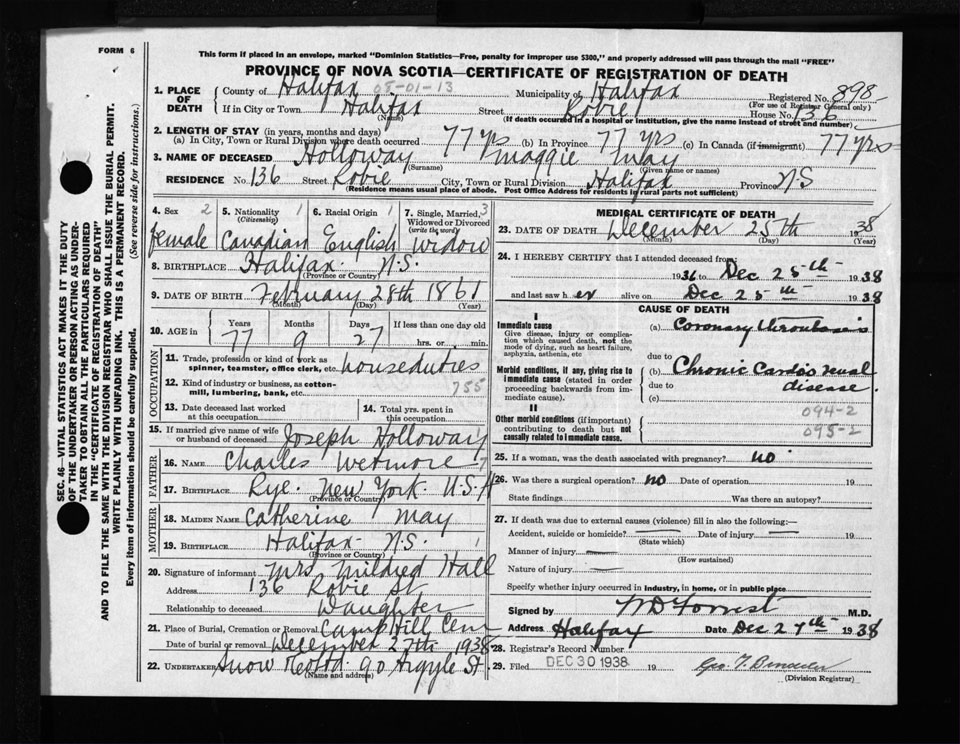 FORM 6
This form if placed in an envelope, marked "Dominion Statistics—Free, penalty for improper use $300," and properly addressed will pass through the mail "FREE"
PROVINCE OF NOVA SCOTIA—CERTIFICATE OF REGISTRATION OF DEATH
1. PLACE OF DEATH County of Halifax 05-01-13 Municipality of Halifax Registered No. 898
(For use of Registrar General only)
If in City or Town Halifax Street Robie House No. 136
(Name) (If death occurred in a hospital or institution, give the name instead of street and number)
2. LENGTH OF STAY (in years, months and days)
(a) In City, Town or Rural Division where death occurred 77 yrs (b) In Province 77 yrs (c) In Canada (if immigrant) 77 yrs
3. NAME OF DECEASED Holloway Maggie May
(Surname) (Given name or names)
RESIDENCE No. 136 Street Robie City, Town or Rural Division Halifax Province NS
(Residence means usual place of abode. Post Office Address for residents in rural parts not sufficient)
SEC. 46—VITAL STATISTICS ACT MAKES IT THE DUTY
OF THE UNDERTAKER OR PERSON ACTING AS UNDER-
TAKER TO OBTAIN ALL THE PARTICULARS REQUIRED
IN THE "CERTIFICATE OF REGISTRATION OF DEATH"
AND TO FILE THE SAME WITH THE DIVISION REGISTRAR WHO SHALL ISSUE THE BURIAL PERMIT.
WRITE PLAINLY WITH UNFADING INK. THIS IS A PERMANENT RECORD.
Every item of information should be carefully supplied. (See reverse side for instructions.)
4. Sex 2 5. Nationality 1 6. Racial Origin 1 7. Single, Married, 3
(Citizenship) Widowed or Divorced
(write the word)
female Canadian English widow
8. BIRTHPLACE Halifax N.S.
(Province or Country)
9. DATE OF BIRTH February 28th 1861
(Month) (Day) (Year)
10. AGE in Years Months Days If less than one day old
77 9 27 hrs. or min.
OCCUPATION
11. Trade, profession or kind of work as
spinner, teamster, office clerk, etc. houseduties
12. Kind of industry or business, as cotton-
mill, lumbering, bank, etc. 755
13. Date deceased last worked at this occupation 14. Total yrs. spent in this occupation
15. If married give name of wife or husband of deceased Joseph Holloway
FATHER
16. NAME Charles Wetmore 7
17. BIRTHPLACE Rye. New York. U.S.A
(Province or Country)
MOTHER
18. MAIDEN NAME Catherine May
19. BIRTHPLACE Halifax N.S. 1
(Province or Country)
20. Signature of informant Mrs Mildred Hall
Address 136 Robie St
Relationship to deceased Daughter
21. Place of Burial, Cremation or Removal Camp Hill Cem
Date of burial or removal December 27th 1938
22. UNDERTAKER Snow 90 Argyle St
(Name and address)
MEDICAL CERTIFICATE OF DEATH
23. DATE OF DEATH December 25th 1938
(Month) (Day) (Year)
24. I HEREBY CERTIFY that I attended deceased from:
1936 to Dec 25th 1938
and last saw her alive on Dec 25th 1938
CAUSE OF DEATH
I
Immediate cause
Give disease, injury or complica-
tion which caused death, not the
mode of dying, such as heart failure,
asphyxia, asthenia, etc
(a) Coronary thrombosis
due to
Morbid conditions, if any, giving rise to
immediate cause (stated in order
proceeding backwards from im-
mediate cause).
(b) Chronic Cardio renal
due to disease.
(c)
II
Other morbid conditions (if important)
contributing to death but not
causally related to immediate cause.
094-2
095-2
25. If a woman, was the death associated with pregnancy? no
26. Was there a surgical operation? no Date of operation 19
State findings Was there an autopsy?
27. If death was due to external causes (violence) fill in also the following:—
Accident, suicide or homicide? Date of injury 19
(State which)
Manner of injury
(How sustained)
Nature of injury
Specify whether injury occurred in industry, in home, or in public place
Signed by WD Forrest M.D.
Address Halifax Date Dec 27th 1938
28. Registrar's Record Number
29. Filed DEC 30 1938 19 Geo. T.
(Division Registrar)